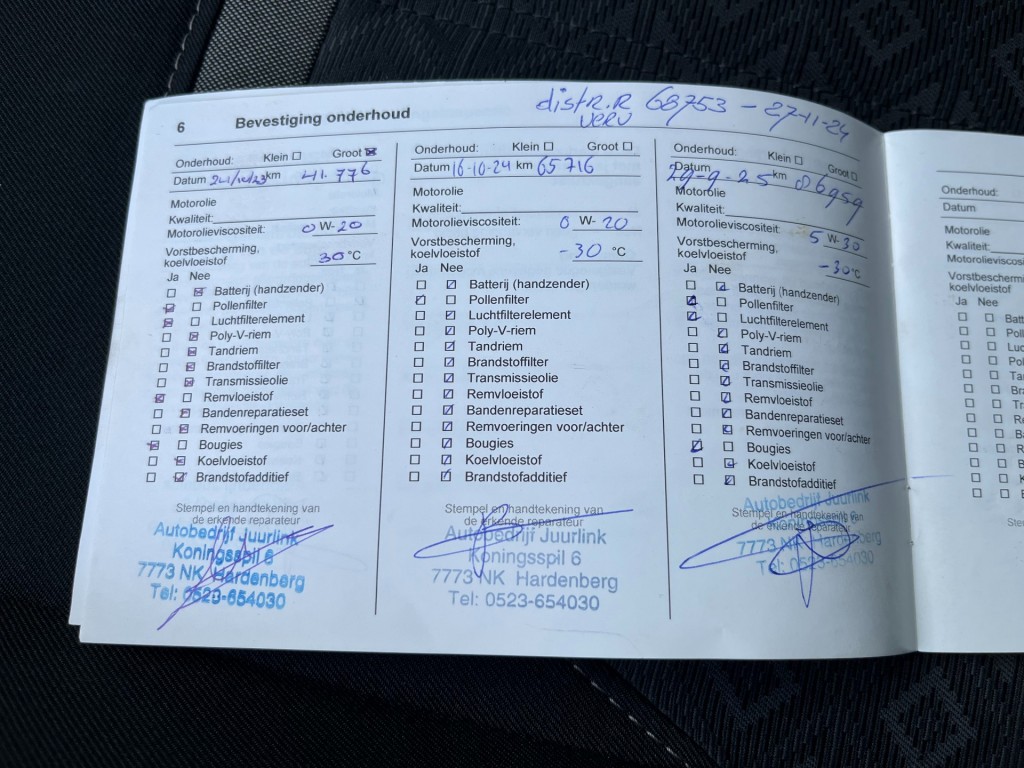 distR.R 68753 - 27-11-24
VERV
6 Bevestiging onderhoud
Onderhoud: Klein ☐ Groot ☒
Datum 24/10/23 km 41.776
Motorolie
Kwaliteit:
Motorolieviscositeit: 0 W- 20
Vorstbescherming,
koelvloeistof 30 °C
Ja Nee
☐ ☒ Batterij (handzender)
☒ ☐ Pollenfilter
☒ ☐ Luchtfilterelement
☐ ☒ Poly-V-riem
☐ ☒ Tandriem
☐ ☒ Brandstoffilter
☐ ☒ Transmissieolie
☒ ☐ Remvloeistof
☐ ☒ Bandenreparatieset
☐ ☒ Remvoeringen voor/achter
☒ ☐ Bougies
☐ ☒ Koelvloeistof
☐ ☒ Brandstofadditief
Stempel en handtekening van
de erkende reparateur
Autobedrijf Juurlink
Koningsspil 6
7773 NK Hardenberg
Tel: 0523-654030
Onderhoud: Klein ☐ Groot ☐
Datum 16-10-24 km 65716
Motorolie
Kwaliteit:
Motorolieviscositeit: 0 W- 20
Vorstbescherming,
koelvloeistof -30 °C
Ja Nee
☐ ☑ Batterij (handzender)
☑ ☐ Pollenfilter
☐ ☑ Luchtfilterelement
☐ ☑ Poly-V-riem
☐ ☑ Tandriem
☐ ☑ Brandstoffilter
☐ ☑ Transmissieolie
☐ ☑ Remvloeistof
☐ ☑ Bandenreparatieset
☐ ☑ Remvoeringen voor/achter
☐ ☑ Bougies
☐ ☑ Koelvloeistof
☐ ☑ Brandstofadditief
Stempel en handtekening van
de erkende reparateur
Autobedrijf Juurlink
Koningsspil 6
7773 NK Hardenberg
Tel: 0523-654030
Onderhoud: Klein ☐ Groot ☐
Datum 29-9-25 km 86959
Motorolie
Kwaliteit:
Motorolieviscositeit: 5 W- 30
Vorstbescherming,
koelvloeistof -30 °C
Ja Nee
☐ ☑ Batterij (handzender)
☑ ☐ Pollenfilter
☑ ☐ Luchtfilterelement
☐ ☑ Poly-V-riem
☐ ☑ Tandriem
☐ ☑ Brandstoffilter
☐ ☑ Transmissieolie
☐ ☑ Remvloeistof
☐ ☑ Bandenreparatieset
☐ ☑ Remvoeringen voor/achter
☑ ☐ Bougies
☐ ☑ Koelvloeistof
☐ ☑ Brandstofadditief
Stempel en handtekening van
de erkende reparateur
Autobedrijf Juurlink
7773 NK Hardenberg
Tel: 0523-654030
Onderhoud:
Datum
Motorolie
Kwaliteit:
Vorstbescherm
koelvloeistof
Ja Nee